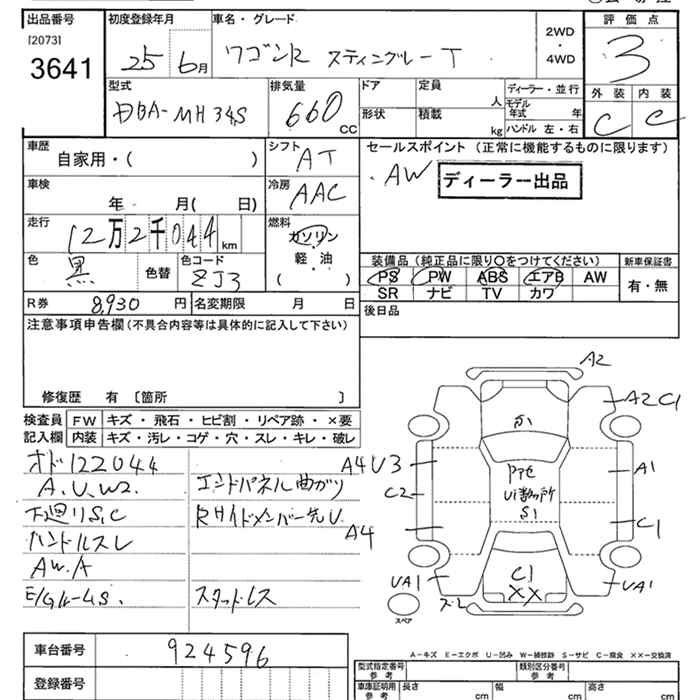 出品番号
[2073]
3641
初度登録年月
25 6月
車名・グレード
ワゴンR スティングレーT
2WD
・
4WD
評価点
3
外装 内装
C C
型式
DBA-MH34S
排気量
660
CC
ドア
定員
人
形状
積載
kg
ディーラー・並行
モデル
年式 年
ハンドル 左・右
車歴
自家用・( )
シフト
AT
セールスポイント (正常に機能するものに限ります)
AW
ディーラー出品
車検
年 月( 日)
冷房
AAC
走行
12万2千044km
燃料
ガソリン
軽・油
( )
色
黒
色替
色コード
ZJ3
装備品(純正品に限り○をつけてください)
新車保証書
PS PW ABS エアB AW
SR ナビ TV カワ
有・無
R券 8,930 円
名変期限 月 日
後日品
注意事項申告欄(不具合内容等は具体的に記入して下さい)
修復歴 有 〔箇所 〕
検査員
記入欄
FW キズ・飛石・ヒビ割・リペア跡・×要
内装 キズ・汚レ・コゲ・穴・スレ・キレ・破レ
オド122044
A.U.W2.
下廻りS,C
ハンドルスレ
AW.A
エンドパネル曲がり
Rサイドメンバー先U
スタッドレス
A2
A2 C1
A4 U3
C2
A1
A4
C1
S1
C1
××
UA1
UA1
スペア
車台番号
924596
登録番号
A-キズ E-エクボ U-凹み W-補修跡 S-サビ C-腐食 ××-交換済
型式指定番号
参考
類別区分番号
参考
車庫証明用
参考
長さ cm
幅 cm
高さ cm